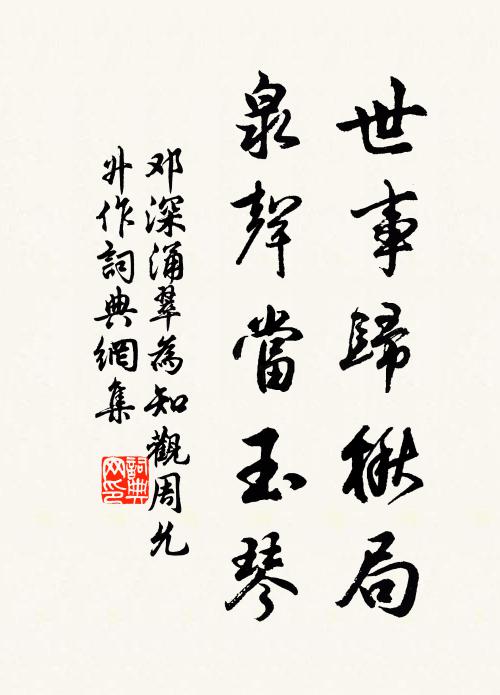 世事歸楸局
泉聲當玉琴
邓深涌翠為知觀周允
升作詞典網集
詞典网印